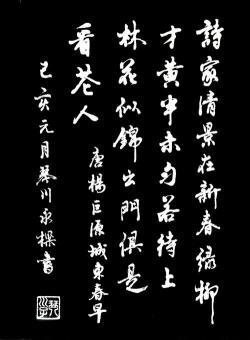 詩家清景在新春綠柳
才黃半未勻若待上
林花似錦出門俱是
看花人
唐楊巨源城東春早
己亥元月琴川永樑書